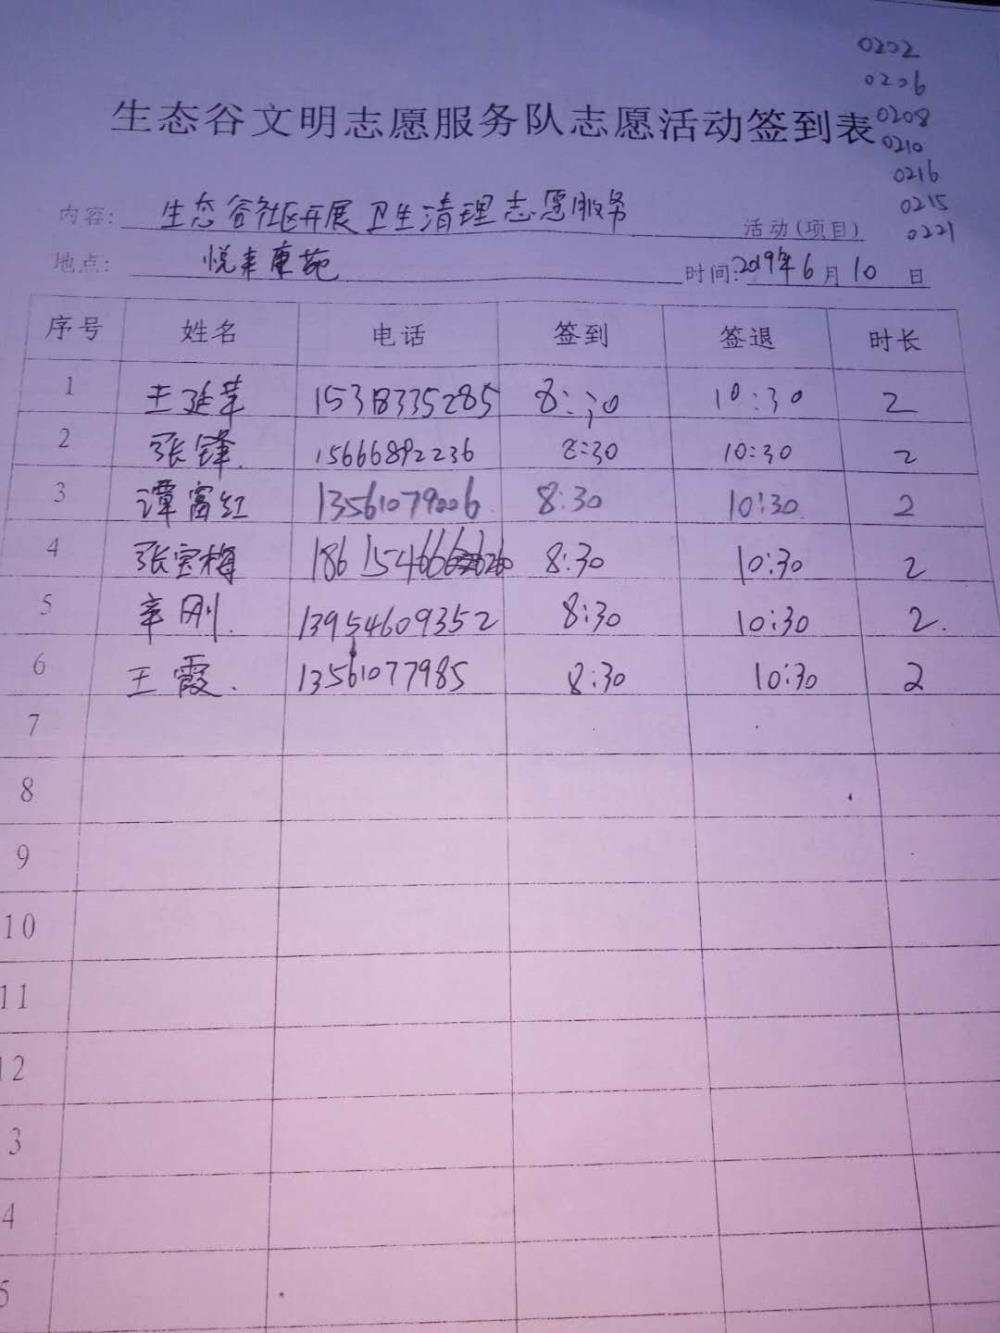 0202
0206
生态谷文明志愿服务队志愿活动签到表
0208
0210
0216
0215
0221
内容: 生态谷社区开展卫生清理志愿服务 活动(项目)
地点: 悦来康苑 时间:2019年6月10日
序号 姓名 电话 签到 签退 时长
1 王延苹 15318335285 8:30 10:30 2
2 张锋 15666892236 8:30 10:30 2
3 谭富红 13561079006 8:30 10:30 2
4 张宝梅 8:30 10:30 2
5 刚 13954609352 8:30 10:30 2
6 王霞 13561077985 8:30 10:30 2
7
8
9
10
11
12
3
4
5